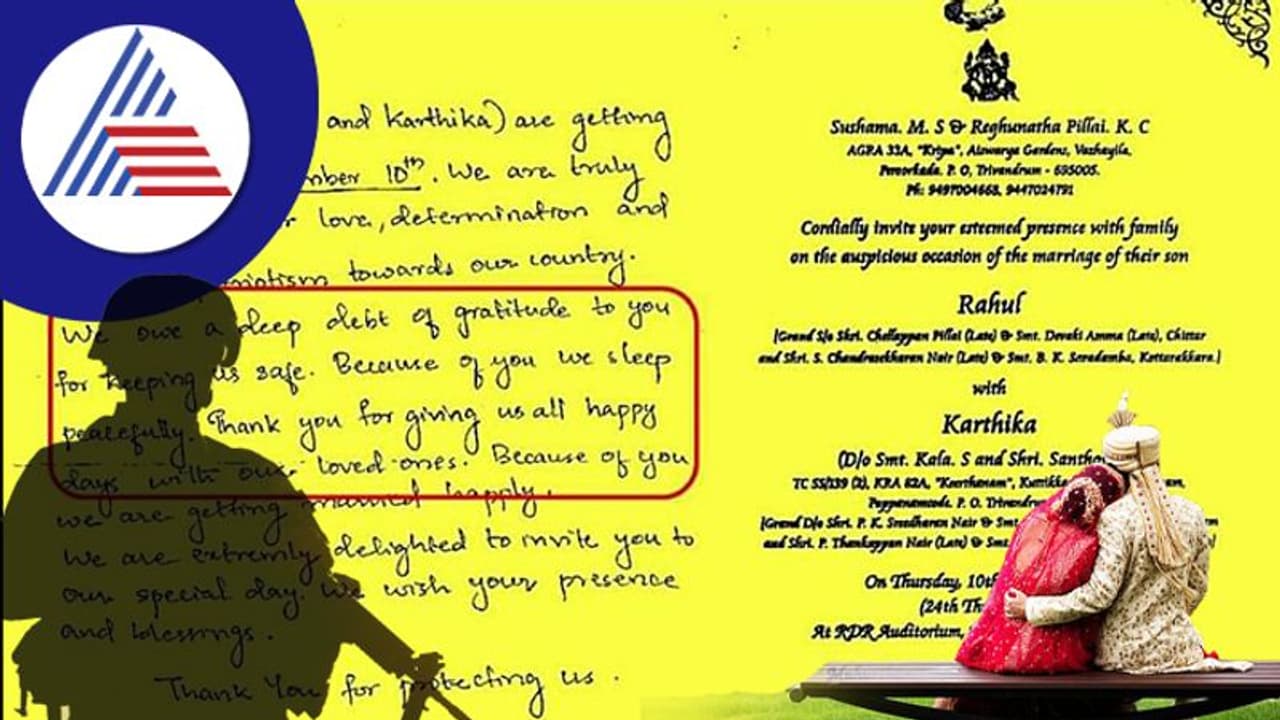 and Karthika) are getting
10th. We are truly
love, determination and
towards our country.
We owe a deep debt of gratitude to you
for keeping us safe. Because of you we sleep
peacefully. Thank you for giving us all happy
days with our loved ones. Because of you
we are getting married happily.
We are extremly delighted to invite you to
our special day. We wish your presence
and blessings.
Thank You for protecting us.
Sushama. M. S & Reghunatha Pillai. K. C
AGRA 33A, "Kripa", Aiswarya Gardens, Vazhayila,
Peroorkada. P. O, Trivandrum - 695005.
Ph: 9497004663, 9447024791
Cordially invite your esteemed presence with family
on the auspicious occasion of the marriage of their son
Rahul
[Grand S/o Shri. Chellappan Pillai (Late) & Smt. Devaki Amma (Late), Chittar
and Shri. S. Chandrasekharan Nair (Late) & Smt. B. K. Saradamba, Kottarakkara.]
with
Karthika
(D/o Smt. Kala. S and Shri.
TC 55/139 (2), KRA 62A, "Keerthanam",
Pappanamcode. P. O.
[Grand D/o Shri. P. K. Sreedharan Nair & Smt
and Shri. P. Thankappan Nair (Late) & Smt
On Thursday, 10th
(24th
At RDR Auditorium,